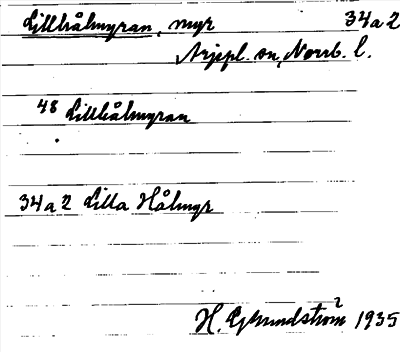 Lillhålmyran, myr 34a2
Arjepl. sn, Norrb. l.
48 Lillhålmyran
34a2 Lilla Hålmyr
H. Geijerström 1935